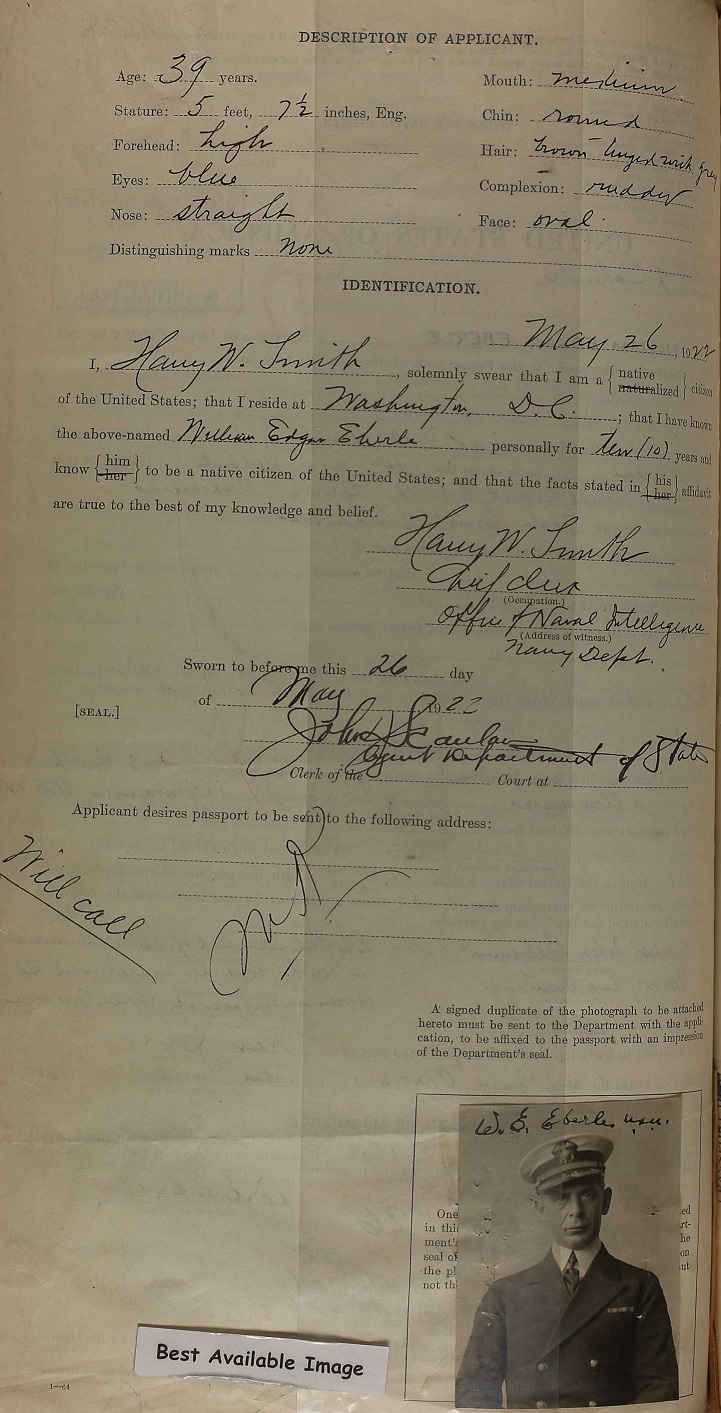 DESCRIPTION OF APPLICANT.
Age: 39 years.
Mouth: medium
Stature: 5 feet, 7½ inches, Eng.
Chin: round
Forehead: high
Hair: brown tinged with grey
Eyes: blue
Complexion: ruddy
Nose: straight
Face: oval.
Distinguishing marks none
IDENTIFICATION.
May 26, 1922
I, Harry W. Smith, solemnly swear that I am a { native naturalized } citizen
of the United States; that I reside at Washington, D.C.; that I have known
the above-named William Edgar Eberle personally for ten (10) years and
know { him her } to be a native citizen of the United States; and that the facts stated in { his her } affidavit
are true to the best of my knowledge and belief.
Harry W. Smith
Chief Clerk
(Occupation.)
Office of Naval Intelligence
(Address of witness.)
Navy Dept.
Sworn to before me this 26 day
of May, 1922
[SEAL.]
John Scanlan
Agent Department of State
Clerk of the Court at
Applicant desires passport to be sent to the following address:
Will call
A signed duplicate of the photograph to be attached
hereto must be sent to the Department with the appli-
cation, to be affixed to the passport with an impression
of the Department's seal.
W. E. Eberle USN.
One ed
in thi rt-
ment's he
seal of on
the pl ut
not th
Best Available Image
1—64